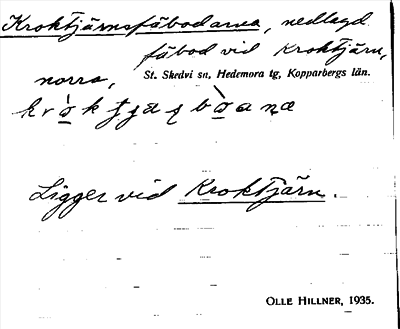 Kroktjärnsfäbodarna, nedlagd
fäbod vid Kroktjärn,
norra, St. Skedvi sn, Hedemora tg, Kopparbergs län.
Ligger vid Kroktjärn.
OLLE HILLNER, 1935.